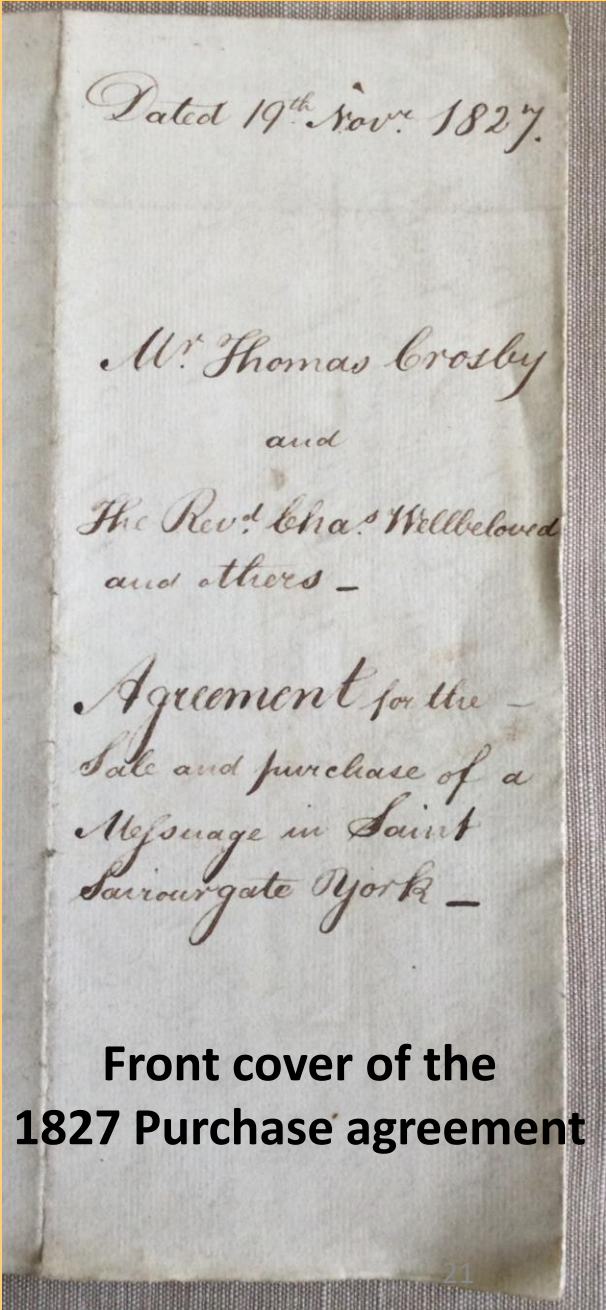 Dated 19th Novr. 1827.
Mr. Thomas Crosby
and
The Revd. Chas. Wellbeloved
and others –
Agreement for the –
Sale and purchase of a
Meſsuage in Saint
Saviourgate York –
Front cover of the
1827 Purchase agreement
21